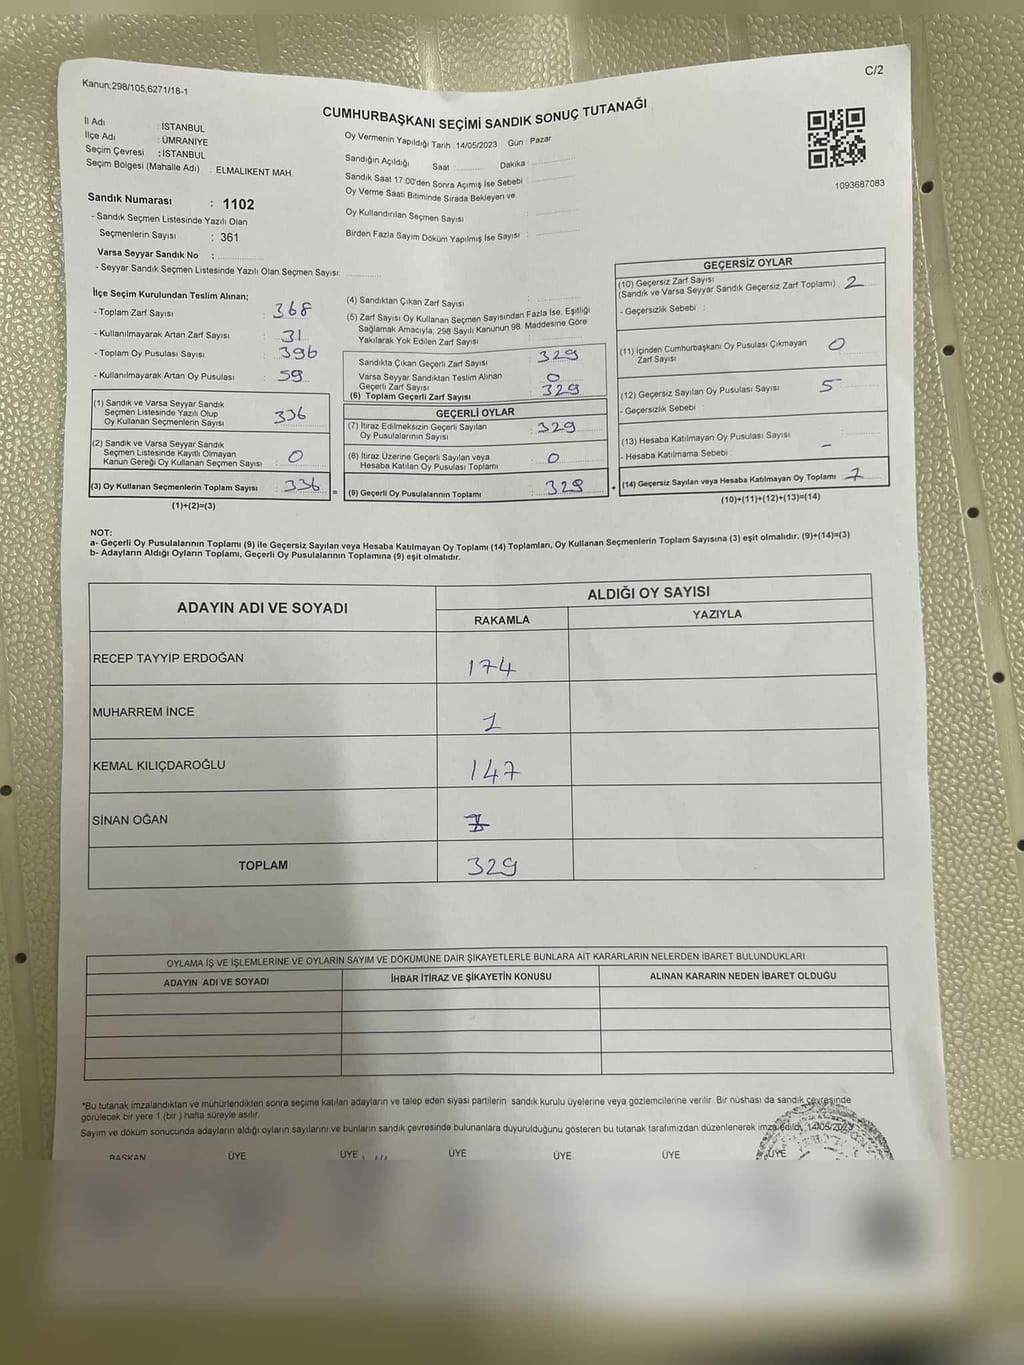 C/2
Kanun;298/105;6271/18-1
CUMHURBAŞKANI SEÇİMİ SANDIK SONUÇ TUTANAĞI
İl Adı : İSTANBUL
İlçe Adı : ÜMRANİYE
Seçim Çevresi : İSTANBUL
Seçim Bölgesi (Mahalle Adı) : ELMALIKENT MAH.
Sandık Numarası : 1102
- Sandık Seçmen Listesinde Yazılı Olan
Seçmenlerin Sayısı : 361
Varsa Seyyar Sandık No :
- Seyyar Sandık Seçmen Listesinde Yazılı Olan Seçmen Sayısı:
Oy Vermenin Yapıldığı Tarih : 14/05/2023 Gün : Pazar
Sandığın Açıldığı Saat Dakika :
Sandık Saat 17:00'den Sonra Açımış İse Sebebi :
Oy Verme Saati Bitiminde Sırada Bekleyen ve
Oy Kullandırılan Seçmen Sayısı :
Birden Fazla Sayım Döküm Yapılmış İse Sayısı :
1093687083
İlçe Seçim Kurulundan Teslim Alınan;
- Toplam Zarf Sayısı : 368
- Kullanılmayarak Artan Zarf Sayısı : 31
- Toplam Oy Pusulası Sayısı : 396
- Kullanılmayarak Artan Oy Pusulası : 59
(1) Sandık ve Varsa Seyyar Sandık
Seçmen Listesinde Yazılı Olup
Oy Kullanan Seçmenlerin Sayısı : 336
(2) Sandık ve Varsa Seyyar Sandık
Seçmen Listesinde Kayıtlı Olmayan
Kanun Gereği Oy Kullanan Seçmen Sayısı : 0
(3) Oy Kullanan Seçmenlerin Toplam Sayısı : 336
(1)+(2)=(3)
(4) Sandıktan Çıkan Zarf Sayısı :
(5) Zarf Sayısı Oy Kullanan Seçmen Sayısından Fazla İse, Eşitliği
Sağlamak Amacıyla; 298 Sayılı Kanunun 98. Maddesine Göre
Yakılarak Yok Edilen Zarf Sayısı :
Sandıkta Çıkan Geçerli Zarf Sayısı : 329
Varsa Seyyar Sandıktan Teslim Alınan
Geçerli Zarf Sayısı : 0
(6) Toplam Geçerli Zarf Sayısı : 329
GEÇERLİ OYLAR
(7) İtiraz Edilmeksizin Geçerli Sayılan
Oy Pusulalarının Sayısı : 329
(8) İtiraz Üzerine Geçerli Sayılan veya
Hesaba Katılan Oy Pusulası Toplamı : 0
= (9) Geçerli Oy Pusulalarının Toplamı : 329 +
GEÇERSİZ OYLAR
(10) Geçersiz Zarf Sayısı
(Sandık ve Varsa Seyyar Sandık Geçersiz Zarf Toplamı) : 2
- Geçersizlik Sebebi :
(11) İçinden Cumhurbaşkanı Oy Pusulası Çıkmayan
Zarf Sayısı : 0
(12) Geçersiz Sayılan Oy Pusulası Sayısı : 5
- Geçersizlik Sebebi :
(13) Hesaba Katılmayan Oy Pusulası Sayısı : -
- Hesaba Katılmama Sebebi :
(14) Geçersiz Sayılan veya Hesaba Katılmayan Oy Toplamı : 7
(10)+(11)+(12)+(13)=(14)
NOT:
a- Geçerli Oy Pusulalarının Toplamı (9) ile Geçersiz Sayılan veya Hesaba Katılmayan Oy Toplamı (14) Toplamları, Oy Kullanan Seçmenlerin Toplam Sayısına (3) eşit olmalıdır. (9)+(14)=(3)
b- Adayların Aldığı Oyların Toplamı, Geçerli Oy Pusulalarının Toplamına (9) eşit olmalıdır.
ADAYIN ADI VE SOYADI
ALDIĞI OY SAYISI
RAKAMLA YAZIYLA
RECEP TAYYİP ERDOĞAN 174
MUHARREM İNCE 1
KEMAL KILIÇDAROĞLU 147
SİNAN OĞAN
TOPLAM 329
OYLAMA İŞ VE İŞLEMLERİNE VE OYLARIN SAYIM VE DÖKÜMÜNE DAİR ŞİKAYETLERLE BUNLARA AİT KARARLARIN NELERDEN İBARET BULUNDUKLARI
ADAYIN ADI VE SOYADI İHBAR İTİRAZ VE ŞİKAYETİN KONUSU ALINAN KARARIN NEDEN İBARET OLDUĞU
*Bu tutanak imzalandıktan ve mühürlendikten sonra seçime katılan adayların ve talep eden siyasi partilerin sandık kurulu üyelerine veya gözlemcilerine verilir. Bir nüshası da sandık çevresinde
görülecek bir yere 1 (bir ) hafta süreyle asılır.
Sayım ve döküm sonucunda adayların aldığı oyların sayılarını ve bunların sandık çevresinde bulunanlara duyurulduğunu gösteren bu tutanak tarafımızdan düzenlenerek imza edildi. 14/05/2023
BAŞKAN ÜYE ÜYE ÜYE ÜYE ÜYE ÜYE